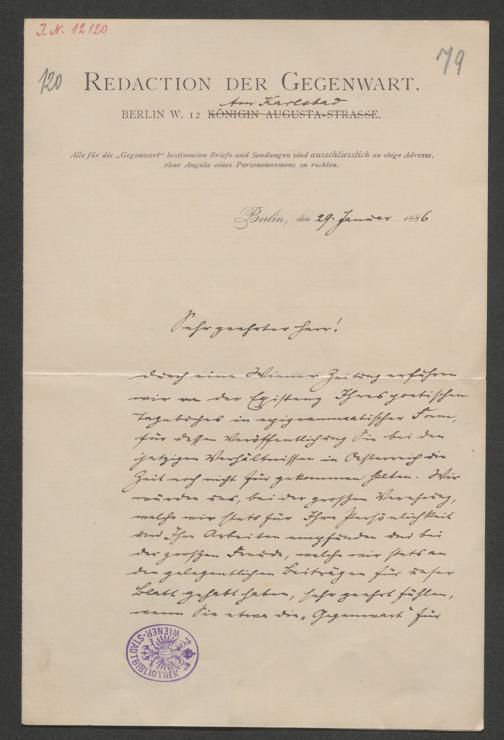 I. N. 12120
120
79
REDACTION DER GEGENWART.
Am Karlsbad
BERLIN W. 12 KÖNIGIN AUGUSTA-STRASSE.
Alle für die „Gegenwart" bestimmten Briefe und Sendungen sind ausschliesslich an obige Adresse,
ohne Angabe eines Personennamens zu richten.
Berlin, den 29. Januar 1886
Sehr geehrter Herr!
Durch eine Wiener Zeitung erfuhren
wir von der Existenz Ihres poetischen
Tagebuches in epigrammatischer Form,
für dessen Veröffentlichung Sie bei den
jetzigen Verhältnissen in Oesterreich die
Zeit noch nicht für gekommen halten. Wir
würden uns, bei der großen Verehrung,
welche wir stets für Ihre Persönlichkeit
und Ihre Arbeiten empfunden und bei
der großen Freude, welche wir stets an
den gelegentlichen Beiträgen für unser
Blatt gehabt haben, sehr geehrt fühlen,
wenn Sie etwa die „Gegenwart" für
WIENER-STADTBIBLIOTHEK